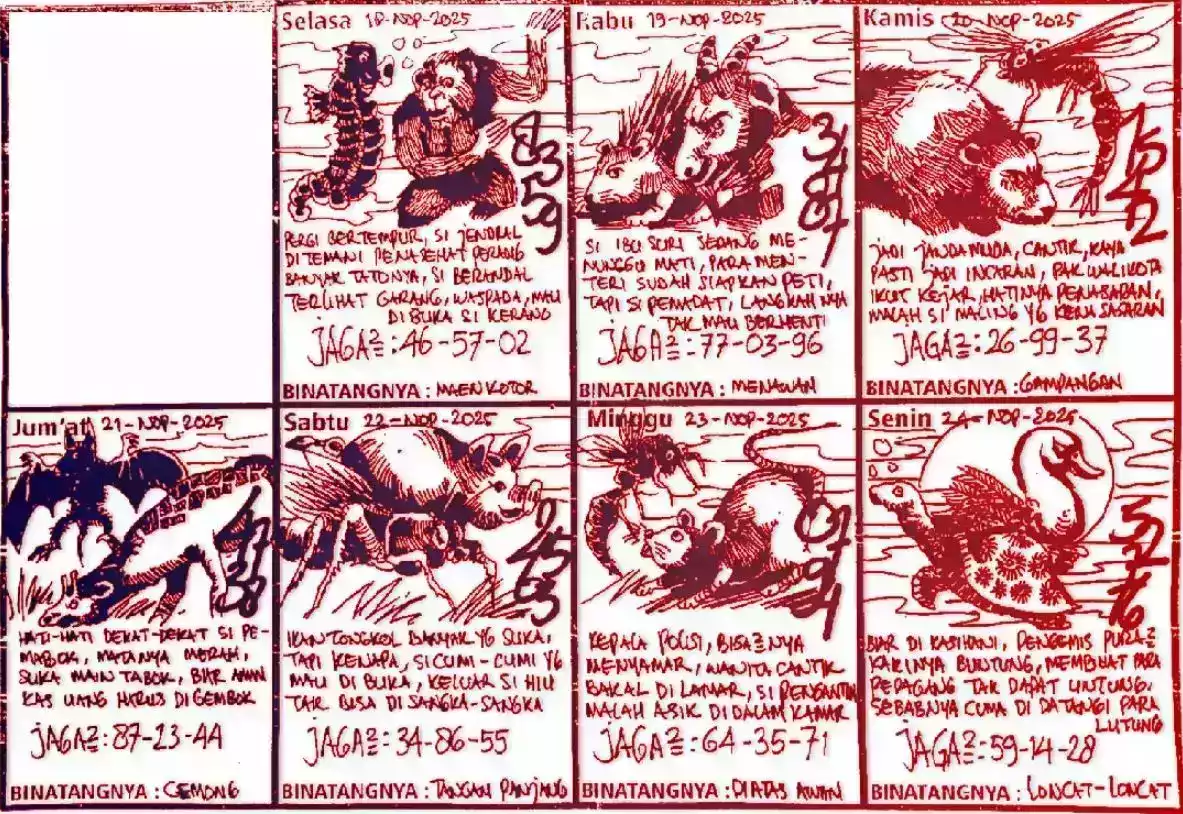 Selasa 18-NOP-2025
83
59
PERGI BERTEMPUR, SI JENDRAL
DITEMANI PENASEHAT PERANG
BANYAK TATONYA, SI BERANDAL
TERLIHAT GARANG, WASPADA, MAU
DIBUKA SI KERANG
JAGA2 : 46-57-02
BINATANGNYA : MAEN KOTOR
Rabu 19-NOP-2025
SI IBU SURI SEDANG ME-
NUNGGU MATI, PARA MEN-
TERI SUDAH SIAPKAN PETI,
TAPI SI PEMADAT, LANGKAHNYA
TAK MAU BERHENTI
JAGA2 : 77-03-96
BINATANGNYA : MENAWAN
Kamis 20-NOP-2025
JADI JANDA MUDA, CANTIK, KAYA
PASTI JADI INCARAN, PAK WALIKOTA
IKUT KEJAR, HATINYA PENASARAN,
MALAH SI MALING YG KENA SASARAN
JAGA2 : 26-99-37
BINATANGNYA : GAMPANGAN
Jum'at 21-NOP-2025
HATI-HATI DEKAT-DEKAT SI PE-
MABOK, MATANYA MERAH,
SUKA MAIN TABOK, BIAR AMAN
KAS UANG HARUS DI GEMBOK
JAGA2 : 87-23-44
BINATANGNYA : CEMONG
Sabtu 22-NOP-2025
IKAN TONGKOL BANYAK YG SUKA,
TAPI KENAPA, SI CUMI-CUMI YG
MAU DI BUKA, KELUAR SI HIU
TAK BISA DI SANGKA-SANGKA
JAGA2 : 34-86-55
BINATANGNYA : TANGAN PANJANG
Minggu 23-NOP-2025
KEPALA POLISI, BISA2NYA
MENYAMAR, WANITA CANTIK
BAKAL DI LAMAR, SI PENGANTIN
MALAH ASIK DIDALAM KAMAR
JAGA2 : 64-35-71
BINATANGNYA : DIATAS AWAN
Senin 24-NOP-2025
BIAR DI KASIHANI, PENGEMIS PURA2
KAKINYA BUNTUNG, MEMBUAT PARA
PEDAGANG TAK DAPAT UNTUNG,
SEBABNYA CUMA DI DATANGI PARA
LUTUNG
JAGA2 : 59-14-28
BINATANGNYA : LONCAT-LONCAT